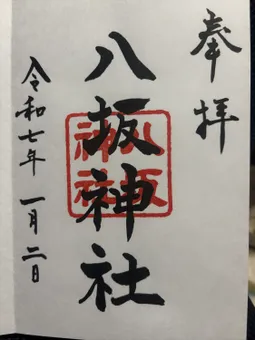 奉拝
八坂神社
八坂神社
令和七年 一月二日